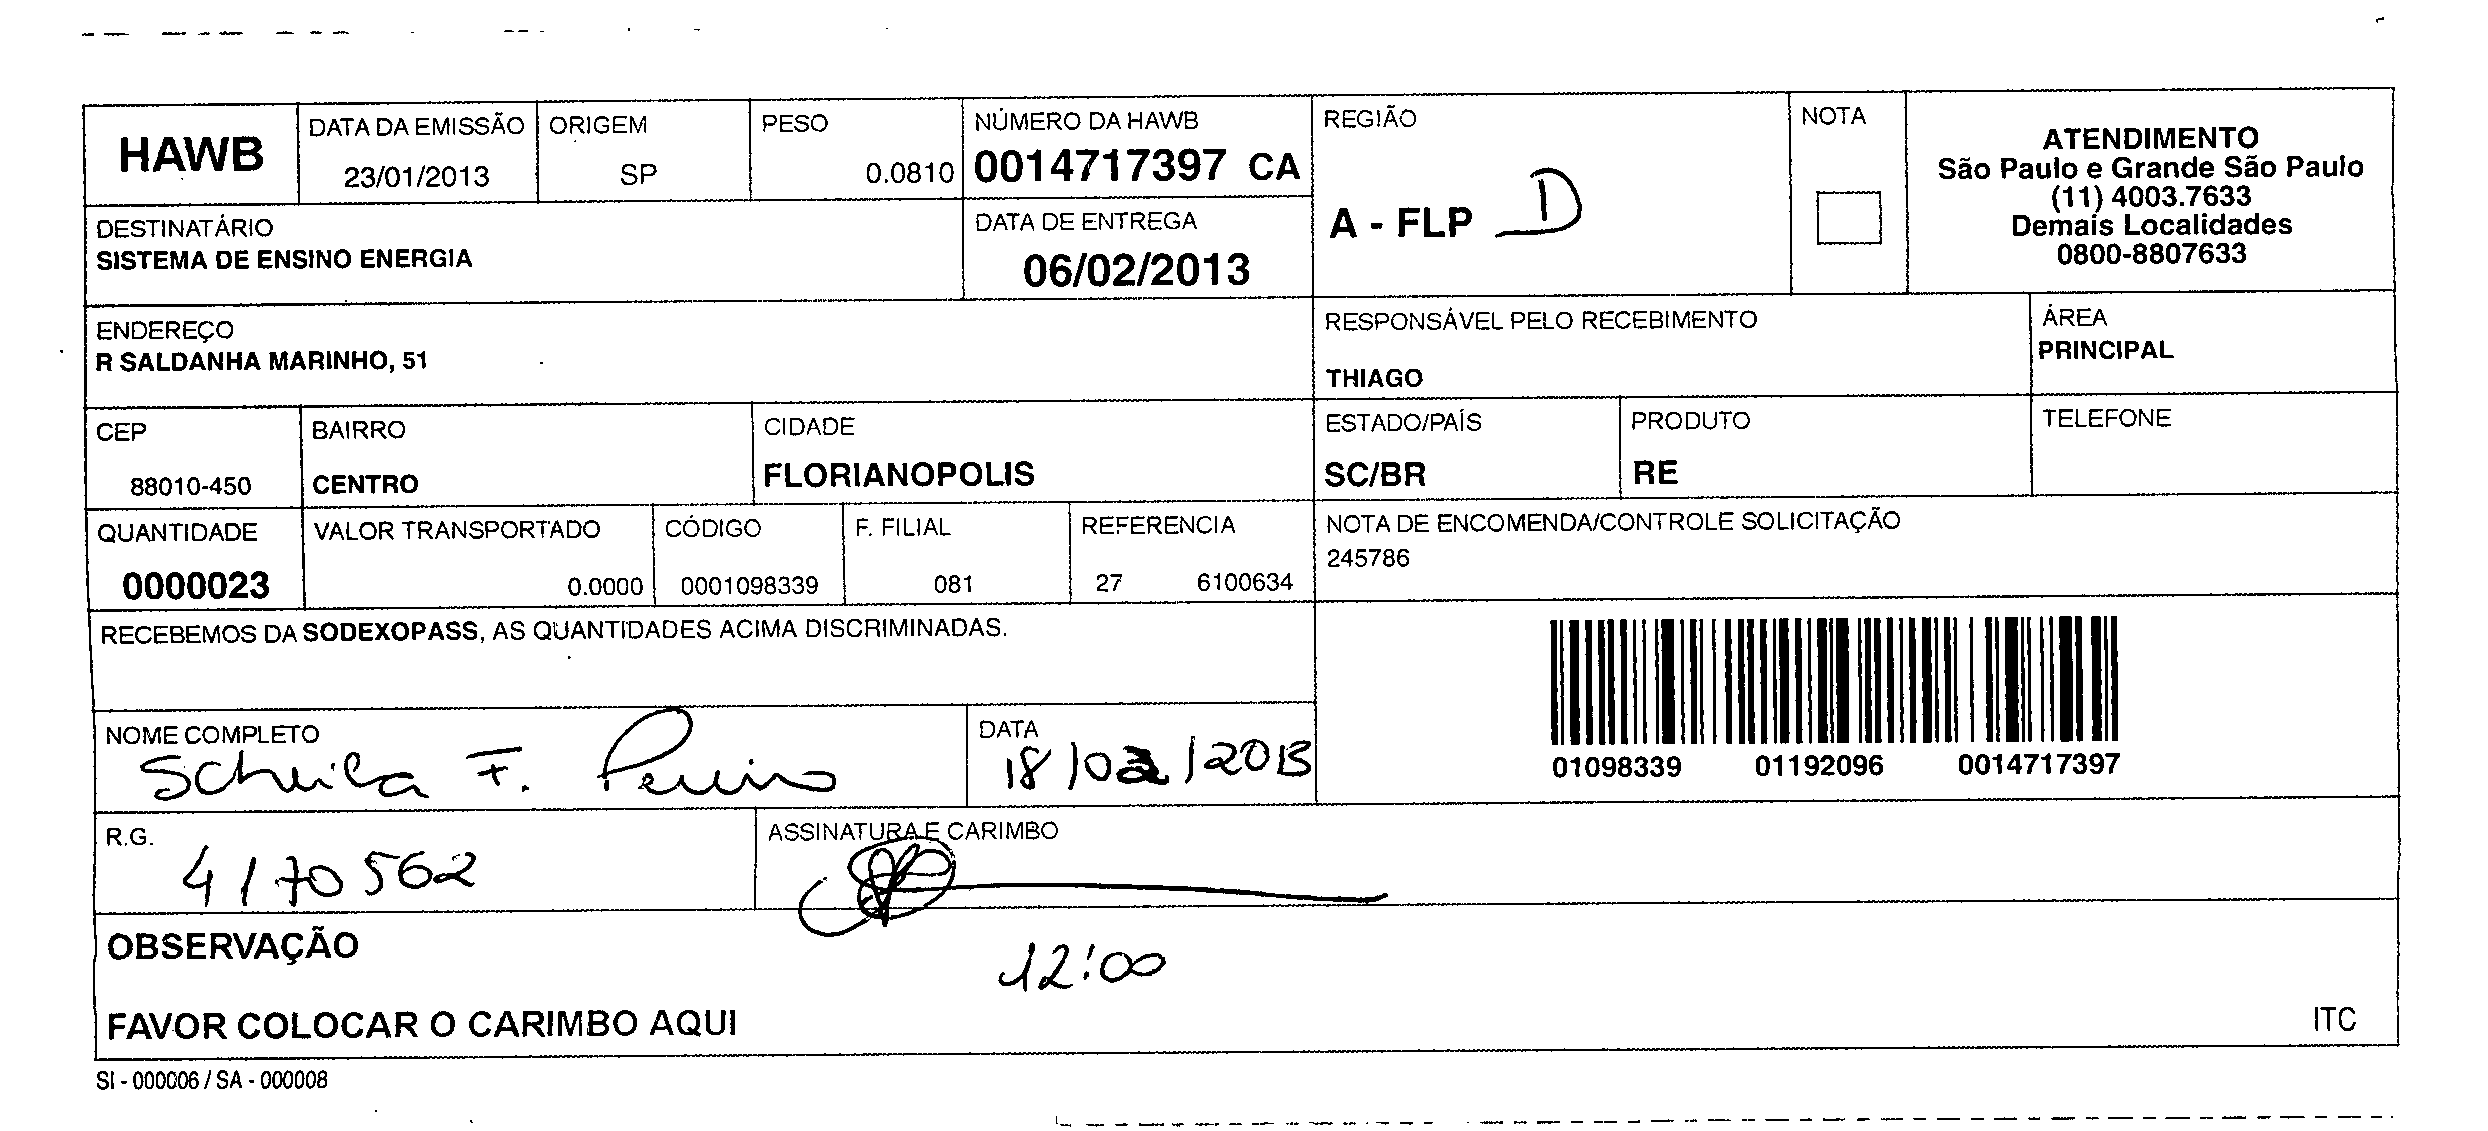 HAWB
DATA DA EMISSÃO
23/01/2013
ORIGEM
SP
PESO
0.0810
NÚMERO DA HAWB
0014717397 CA
REGIÃO
A - FLP D
NOTA
ATENDIMENTO
São Paulo e Grande São Paulo
(11) 4003.7633
Demais Localidades
0800-8807633
DESTINATÁRIO
SISTEMA DE ENSINO ENERGIA
DATA DE ENTREGA
06/02/2013
ENDEREÇO
R SALDANHA MARINHO, 51
RESPONSÁVEL PELO RECEBIMENTO
THIAGO
ÁREA
PRINCIPAL
CEP
88010-450
BAIRRO
CENTRO
CIDADE
FLORIANOPOLIS
ESTADO/PAÍS
SC/BR
PRODUTO
RE
TELEFONE
QUANTIDADE
0000023
VALOR TRANSPORTADO
0.0000
CÓDIGO
0001098339
F. FILIAL
081
REFERENCIA
27 6100634
NOTA DE ENCOMENDA/CONTROLE SOLICITAÇÃO
245786
RECEBEMOS DA SODEXOPASS, AS QUANTIDADES ACIMA DISCRIMINADAS.
01098339 01192096 0014717397
NOME COMPLETO
Scheila F. Pereira
DATA
18/02/2013
R.G.
4170562
ASSINATURA E CARIMBO
OBSERVAÇÃO
12:00
FAVOR COLOCAR O CARIMBO AQUI
ITC
SI - 000006 / SA - 000008